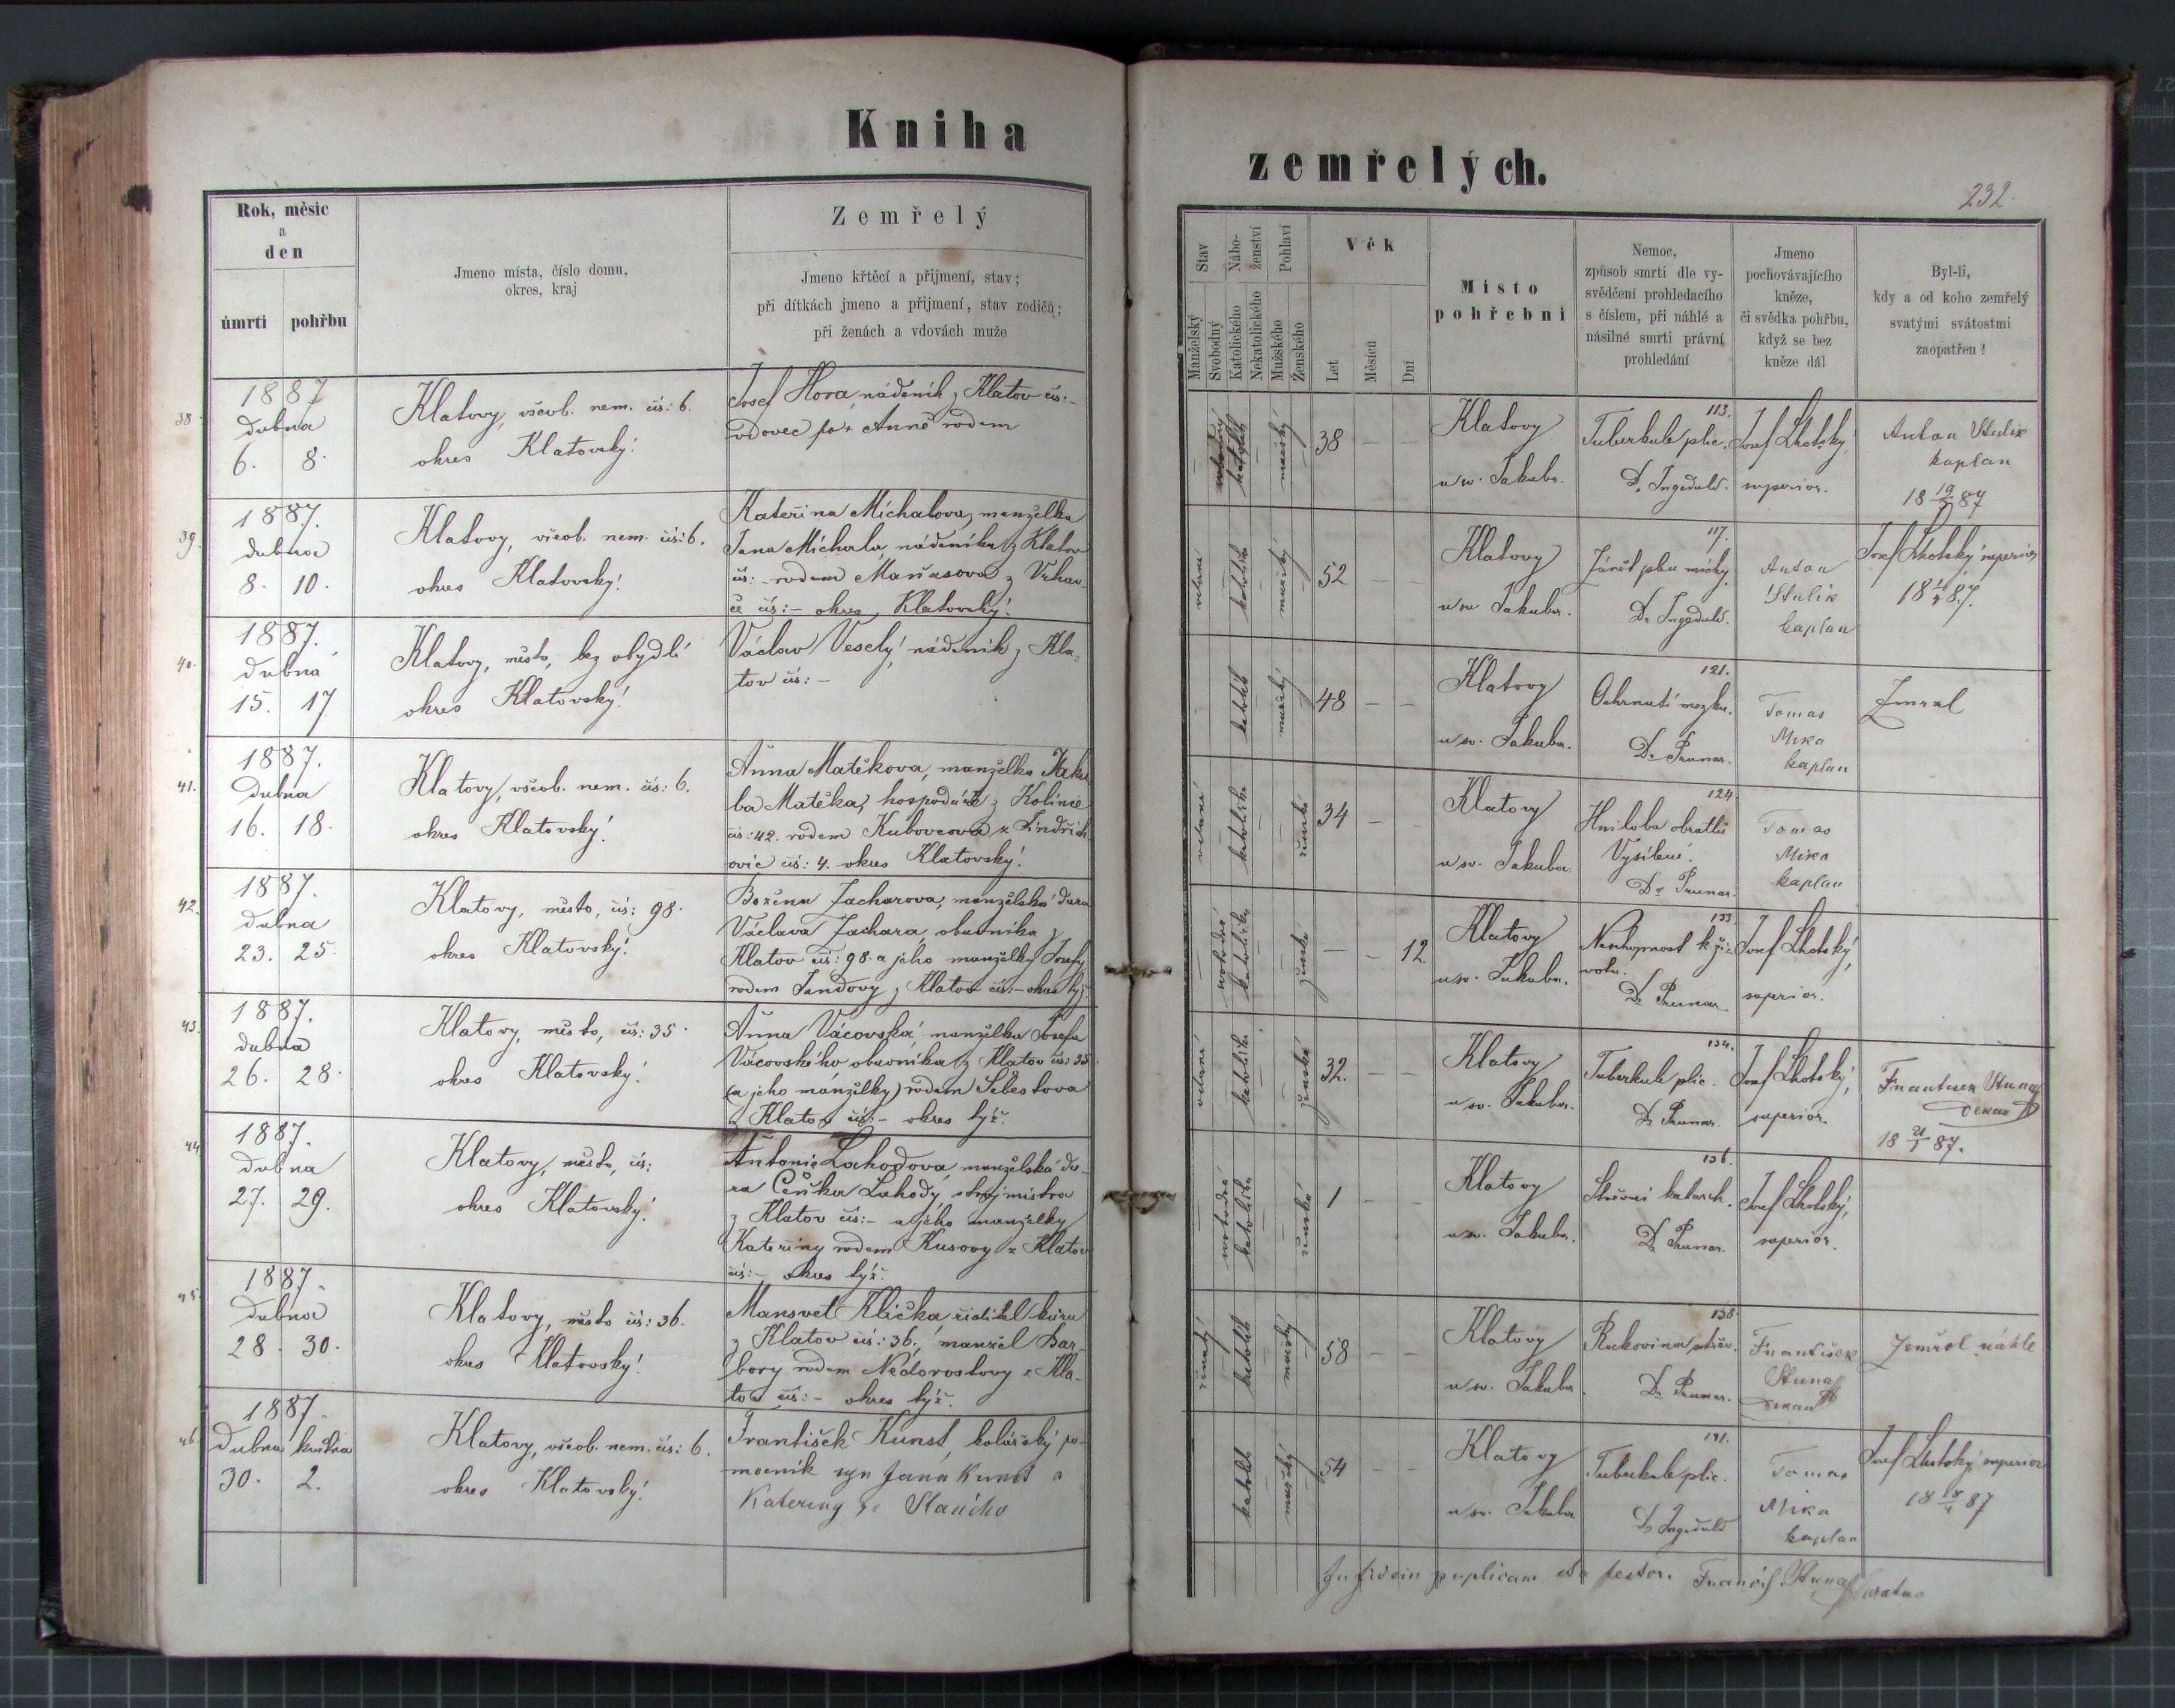 Kniha
zemřelých.
232.
Rok, měsíc
a
den
úmrtí
pohřbu
Jmeno místa, číslo domu,
okres, kraj
Zemřelý
Jmeno křtěcí a přijmení, stav;
při dítkách jmeno a přijmení, stav rodičů;
při ženách a vdovách muže
Stav
Manželský
Svobodný
Nábo-
ženství
Katolického
Nekatolického
Pohlaví
Mužského
Ženského
Věk
Let
Měsíců
Dní
Místo
pohřební
Nemoc,
způsob smrti dle vy-
svědčení prohledacího
s číslem, při náhlé a
násilné smrti právní
prohledání
Jmeno
pochovávajícího
kněze,
či svědka pohřbu,
když se bez
kněze dál
Byl-li,
kdy a od koho zemřelý
svatými svátostmi
zaopatřen?
38.
1887
dubna
6. 8.
Klatovy, všeob. nem. čís: 6.
okres Klatovský.
Josef Hora, nádeník z Klatov čís: -
vdovec po + Anně rodem
38 - -
Klatovy
u sv. Jakuba.
113.
Tuberkule plic.
Josef Lhotský,
superior.
kaplan
39.
1887.
dubna
8. 10.
Klatovy, všeob. nem. čís: 6.
okres Klatovský.
Kateřina Michalova, manželka
Jana Michala, nádeníka z Klatov
čís: - rodem
čís: - okres Klatovský.
52 - -
Klatovy
u sv. Jakuba.
117.
Anton
kaplan
Josef Lhotský superior
40.
1887.
dubna
15. 17
Klatovy, město, bez obydlí
okres Klatovský.
Václav Veselý, nádeník z Kla-
tov čís: -
katolík
mužský
48 - -
Klatovy
u sv. Jakuba.
121.
Ochrnutí mozku.
Dr Prunar.
Tomas
Mika
kaplan
41.
1887.
dubna
16. 18.
Klatovy, všeob. nem. čís: 6.
okres Klatovský.
Anna Matěkova, manželka Jaku
ba Matěka, hospodáře z Kolince
čís: 42. rodem Kubovcova z Jindřich
ovic čís: 4. okres Klatovský.
34 -
Klatovy
u sv. Jakuba.
124
Hniloba obratlů
Vysílení.
Dr Prunar.
Tomas
Mika
kaplan
42.
1887.
dubna
23. 25.
Klatovy, město, čís: 98.
okres Klatovský.
Božena Zacharova, manželská dcera
Václava Zachara, obuvníka z
Klatov čís: 98. a jeho manželky Josefy
rodem Jandovy z Klatov čís: - okres týž.
- - 12
Klatovy
u sv. Jakuba.
133.
Neschopnost k ži-
votu.
Dr Prunar
Josef Lhotský,
superior.
43.
1887.
dubna
26. 28.
Klatovy, město, čís: 35.
okres Klatovský.
Anna Vácovská, manželka Josefa
Vácovského obuvníka z Klatov čís: 35.
(a jeho manželky) rodem Šebestova
z Klatov čís: - okres týž.
32. - -
Klatovy
u sv. Jakuba.
134.
Tuberkule plic.
Dr Prunar.
Josef Lhotský,
superior.
44.
1887.
dubna
27. 29.
Klatovy, město, čís:
okres Klatovský.
Antonie Lahodova, manželská dce-
ra Čeňka Lahody, strojmistra
z Klatov čís: - a jeho manželky
Kateřiny rodem Kusovy z Klatov
čís: - okres týž.
1 - -
Klatovy
u sv. Jakuba.
136.
Střevní katarrh.
Dr Prunar.
Josef Lhotský,
superior.
45.
1887.
dubna
28. 30.
Klatovy, město čís: 36.
okres Klatovský.
Mansvet Klička, ředitel kůru
z Klatov čís: 36., manžel Bar-
bory rodem Nedorostovy z Kla-
tov čís: - okres týž.
58 - -
Klatovy
u sv. Jakuba
138.
Rakovina střev.
Dr Prunar.
František
Zemřel náhle
46.
1887.
dubna května
30. 2.
Klatovy, všeob. nem. čís: 6.
okres Klatovský.
František Kunst, kolářský po-
mocník syn Jana Kunst a
Kateriny ze
katolík
mužský
54 - -
Klatovy
u sv. Jakuba
141.
Tuberkule plic.
Tomas
Mika
kaplan
Josef Lhotský superior